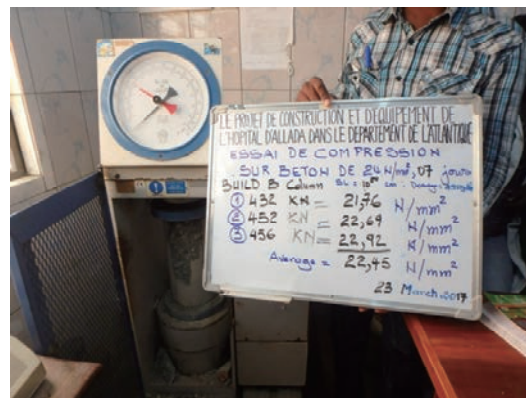 LE PROJET DE CONSTRUCTION ET D'EQUIPEMENT DE
L'HOPITAL D'ALLADA DANS LE DEPARTEMENT DE L'ATLANTIQUE
ESSAI DE COMPRESSION
SUR BETON DE 24 N/mm², 07 jours
BUILD B Column
① 432 KN = 21,76 N/mm²
② 452 KN = 22,69 N/mm²
③ 456 KN = 22,92 N/mm²
Average = 22,45 N/mm²
23 March, 2017